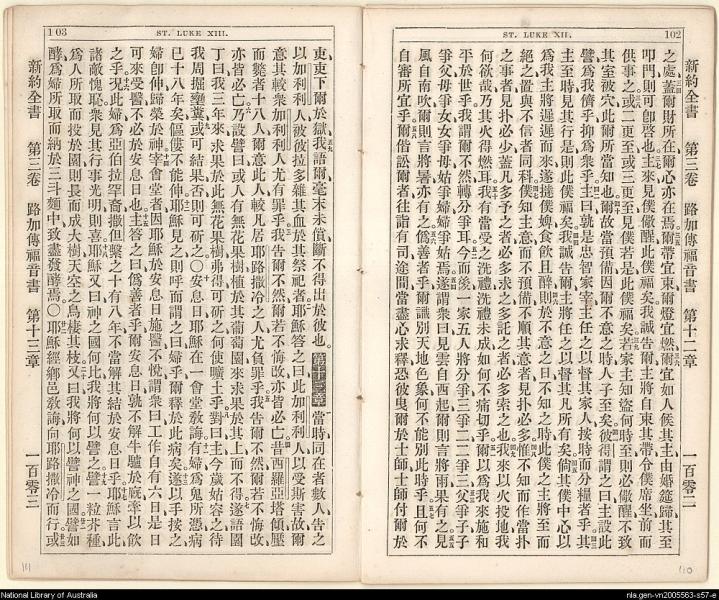 102
ST. LUKE XII.
新約全書 第三卷 路加傳福音書 第十二章 一百零二
之處、蓋爾財所在、爾心亦在焉、爾帶宜束、爾燈宜燃、爾宜如人候其主由婚筵歸、其至
叩門則可卽啓也、主來見僕儆醒、此僕福矣、我誠告爾、主將自束其帶、令僕席坐、前而
供事之、或二更至、或三更至、見僕若是、此僕福矣、若家主知盜何時至、則必儆醒、不致
其室被穴、此爾所當知也、爾故當預備、因爾不意之時、人子至矣、彼得謂之曰、主設此
譬爲我儕乎、抑爲衆乎、主曰、孰是忠智家宰、主任之以督其家人、按時而分糧者乎、其
主至時見其行是、則此僕福矣、我誠告爾、主將任之以督其凡所有矣、倘其僕中心以
爲我主將遲遲而來、遂撻僕婢、食飲且醉、則於不意之日、不知之時、此僕之主將至而
絕之、置與不信者同科、僕知主意而不預備、不順其意者、見扑必多、惟不知而作當扑
之事者、見扑必少、蓋凡多予之者、必多求之、多託之者、必多索之也、我來以火投地、我
何欲哉、乃其火得燃耳、我有當受之洗禮、洗禮未成、如何不痛切乎、爾以爲我來施和
平於世乎、我謂爾、不然、轉分爭耳、今而後一家五人將分爭、三爭二、二爭三、父爭子、子
爭父、母爭女、女爭母、姑爭婦、婦爭姑焉、遂謂衆曰、見雲自西起、爾則言將雨、果有之、見
風自南吹、爾則言將暑、亦有之、僞爲善者乎、爾識別天地色象、何不能別此時乎、且何不
自審所宜乎、爾偕訟爾者往詣有司、途間當盡心求釋、恐彼曳爾於士師、士師付爾於
110
103
ST. LUKE XIII.
吏、吏下爾於獄、我語爾、毫末未償、斷不得出於彼也、第十三章 當時同在者數人、告之
以加利利人被彼拉多雜其血於其祭祀者、耶穌答之曰、此加利利人以受斯害、故爾
意其較衆加利利人尤有罪乎、我告爾、不然、爾若不悔改、亦皆必亡、昔西羅亞塔傾壓
而斃者十八人、爾意此人較凡居耶路撒冷之人尤負罪乎、我告爾、不然、爾若不悔改
亦皆必亡、乃設譬曰、或人有無花果樹植於其葡萄園、來求果於其上而不得、遂語園
丁曰、我三年來求果於此無花果樹弗得、可斫之、何使曠土乎、對曰、主、今歲姑容之、待
我周掘壅糞、或可結果、否則可斫之、○安息日耶穌在一會堂敎誨、有婦爲鬼所憑、病
已十八年矣、傴僂不能伸、耶穌見之、則呼而謂之曰、婦乎、爾釋於此病矣、遂以手按之、
婦卽伸、歸榮於神、宰會堂者因耶穌於安息日施醫不悅、謂衆曰、工作自有六日、是日
可來受醫、不必於安息日也、主答之曰、僞善者乎、爾安息日孰不解牛驢於廐、牽以飮
之乎、況此婦爲亞伯拉罕裔、撒但繫之十有八年、不當解其結於安息日乎、耶穌言此、
諸敵愧恥、衆見其行事光明、則喜、耶穌又曰、神之國何比、我將何以譬之、譬一粒芥種、
爲人所取而投於園、則長而成大樹、天空之鳥棲其枝、又曰、我將何以譬神之國、譬如
酵、爲婦所取而納於三斗麵中、致盡發酵焉、○耶穌經鄉邑敎誨、向耶路撒冷而行、或
新約全書 第三卷 路加傳福音書 第十三章 一百零三
111
National Library of Australia
nla.gen-vn2005563-s57-e